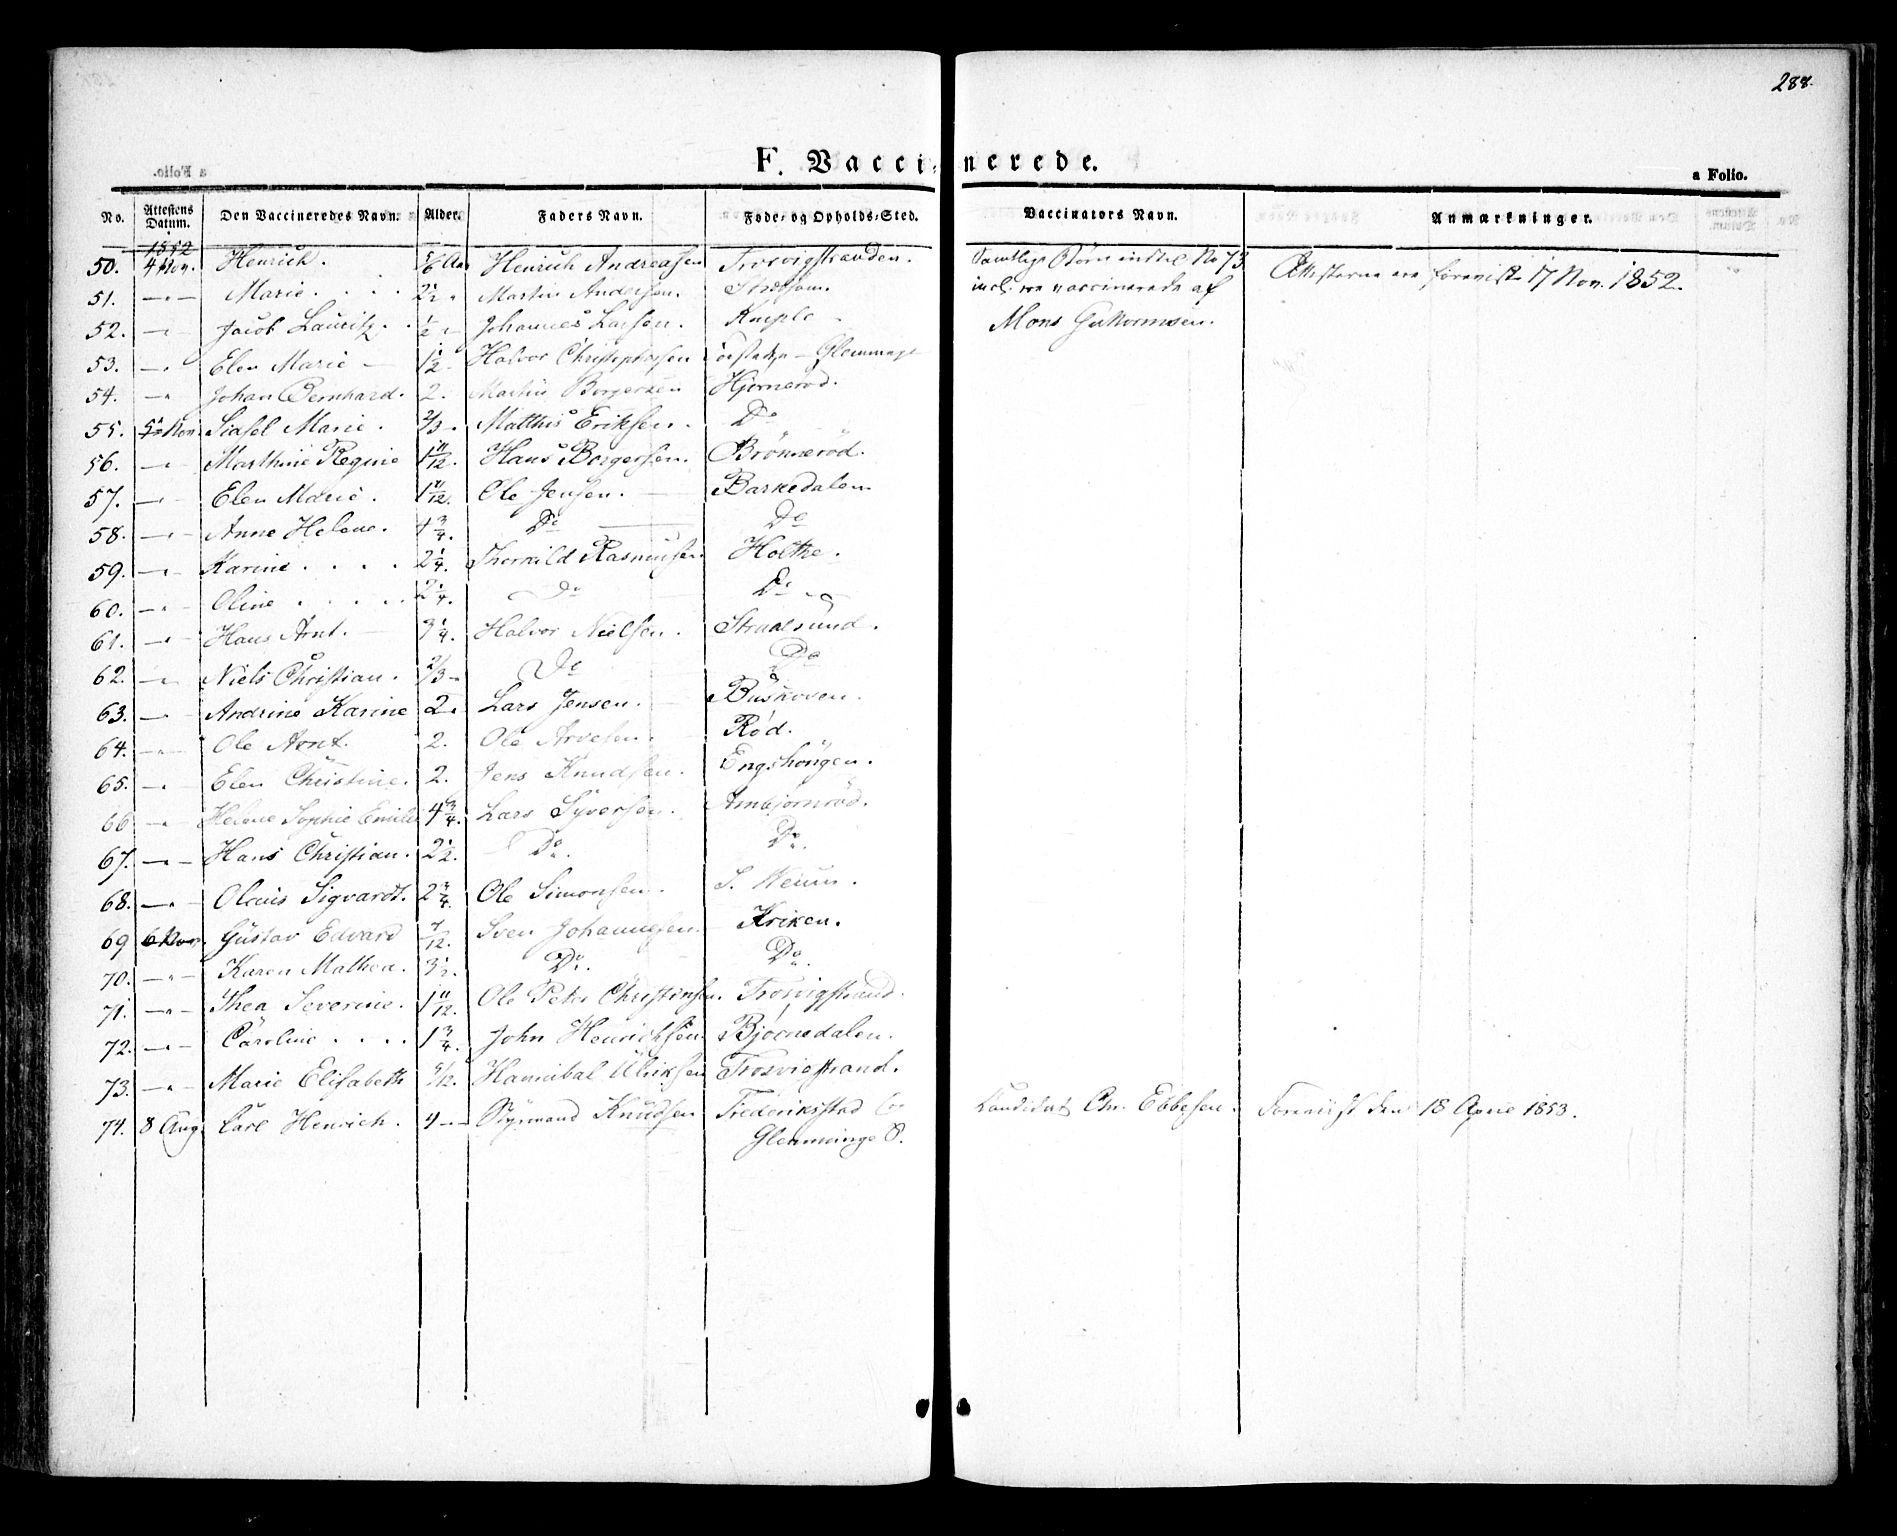 288.
F. Vaccinerede.
a Folio.
No. Attestens Datum. Den Vaccineredes Navn. Alder. Faders Navn. Føde- og Opholds-Sted. Vaccinators Navn. Anmærkninger.
1852
50. 4 Nov. Henrich. 5/6 Aar Henrich Andreasen Trosvigstranden. Samtlige Børn indtil No 73
51. — " — Marie . . . . 2 1/2 " Martin Andersen. incl. ere vaccinerede af Attesterne ere foreviste 17 Nov. 1852.
52. — " Jacob Lauritz. . 1/2 " Johannes Larsen. Kniple Mons Guttormsen.
53. — " Elen Marie — 1 1/2 Halvor Christophersen Glemminge
54. — " Johan Bernhard. 2. Martin Borgersen Hjørnerød.
55. 5 Nov. Sidsel Marie. 2/3 " Matthis Eriksen. Do
56. — " Marthine Regine 1 11/12. Hans Borgersen. Brönnerød.
57. — " Elen Marie. 1 11/12. Ole Jensen. — Barkedalen
58. — " — Anne Helene. 4 3/4. Do — Do
59. — " Karine . . . . 2 1/4. Thorkild Rasmussen Holthe.
60. — " Oline . . . . . 2 1/4. Do Do
61. — " Hans Arnt. — 3 1/4. Halvor Nielsen. Stradsund.
62. — " Niels Christian. 2/3 " Do Do
63. — " Andrine Karine 2. Lars Jensen. Buskoven.
64. — " — Ole Arnt. 2. Ole Arvesen. Rød.
65. — " Elen Christine. 2. Jens Knudsen. Engshöngen.
66 — " Helene Sophie Emilie 4 3/4. Lars Syversen. Ambjørnrød.
67. — " — Hans Christian. 2 1/2. Do. Do.
68. — " — Olaus Sigvardt. 2 3/4. Ole Simonsen. S.
69 6 Nov. Gustav Edvard 7/12. Sven Johannesen. Kriken.
70. — " — Karen Mathea. 3 1/2. Do. Do.
71. — " — Thea Severine. 1 11/12. Ole Peter Christensen. Trosvigstrand.
72. — " — Caroline . . . . 1 3/4. John Henrichsen. Bjørnedalen.
73. — " Marie Elisabeth 5/12. Hannibal Ulriksen Trosvigstrand.
74. 8 Aug. Carl Henrich. 4 — Styrmand Knudsen Frederiksstad Candidat Chr. Ebbesen. Foreviist den 18 April 1853.
Glemminge P.